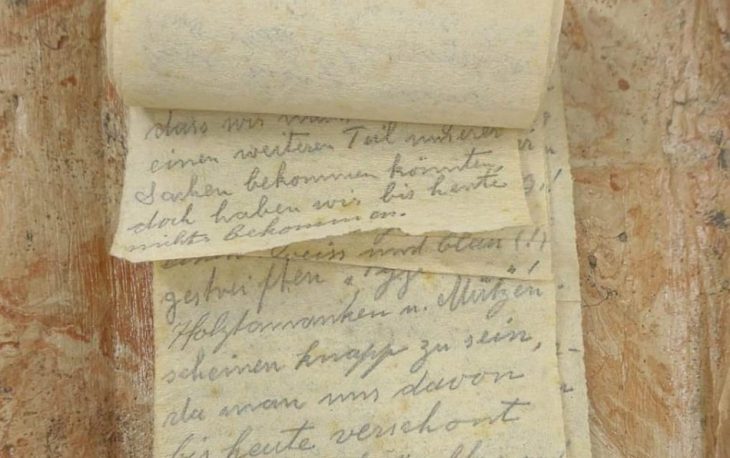 dass wir
einen weiteren Teil unserer
Sachen bekommen könnten,
doch haben wir bis heute
nichts bekommen.
weiss und blau (!)
gestreiften
u. Mützen.
scheinen knapp zu sein,
da man uns davon
bis heute verschont